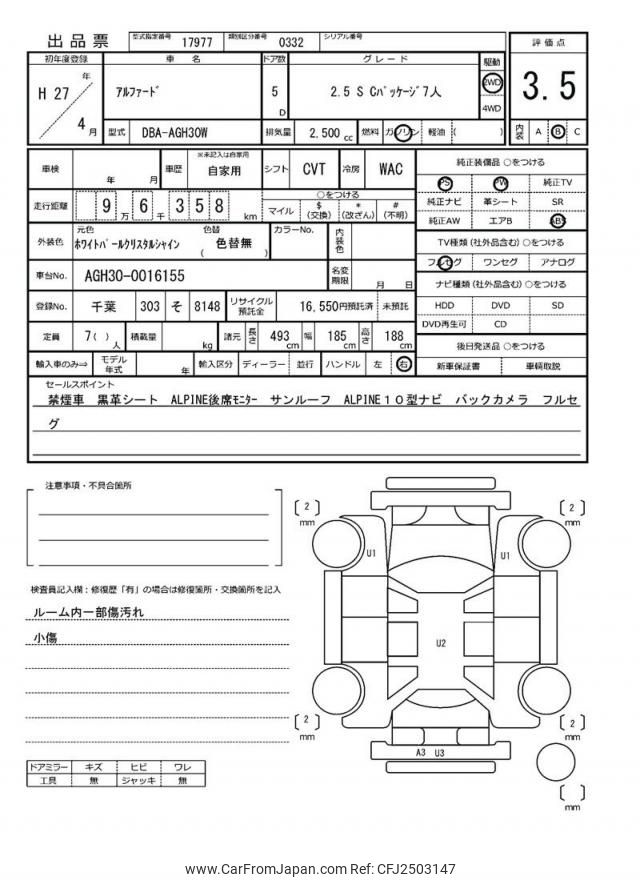 出品票 型式指定番号 17977 類別区分番号 0332 シリアル番号
初年度登録 車名 ドア数 グレード 駆動 評価点
H 27 年 4 月 アルファード 5 D 2.5 S Cパッケージ7人 2WD 4WD 3.5
型式 DBA-AGH30W 排気量 2,500 cc 燃料 ガソリン 軽油 ( ) 内装 A B C
車検 年 月 車歴 ※未記入は自家用 自家用 シフト CVT 冷房 WAC
純正装備品 ○をつける
PS PW 純正TV
純正ナビ 革シート SR
純正AW エアB ABS
走行距離 9 万 6 千 3 5 8 km
○をつける
マイル $ (交換) * (改ざん) # (不明)
外装色 元色 ホワイトパールクリスタルシャイン 色替 ( 色替無 ) カラーNo. 内装色
TV種類 (社外品含む) ○をつける
フルセグ ワンセグ アナログ
車台No. AGH30-0016155 名変期限 月 日
ナビ種類 (社外品含む) ○をつける
HDD DVD SD
DVD再生可 CD
登録No. 千葉 303 そ 8148 リサイクル預託金 16,550円預託済 未預託
定員 7( ) 人 積載量 kg 諸元 長さ 493 cm 幅 185 cm 高さ 188 cm
後日発送品 ○をつける
新車保証書 車輌取説
輸入車のみ⇒ モデル年式 年 輸入区分 ディーラー 並行 ハンドル 左 右
セールスポイント
禁煙車 黒革シート ALPINE後席モニター サンルーフ ALPINE10型ナビ バックカメラ フルセ
グ
注意事項・不具合箇所
検査員記入欄：修復歴「有」の場合は修復箇所・交換箇所を記入
ルーム内一部傷汚れ
小傷
ドアミラー キズ ヒビ ワレ
工具 無 ジャッキ 無
[ 2 ] mm
[ 2 ] mm
U1
U1
U2
[ 2 ] mm
[ 2 ] mm
A3 U3
[ ] mm
www.CarFromJapan.com Ref: CFJ2503147